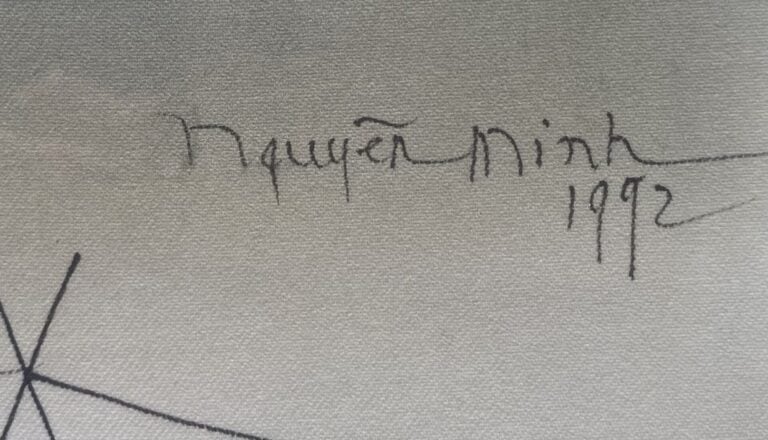 Nguyễn Minh
1992